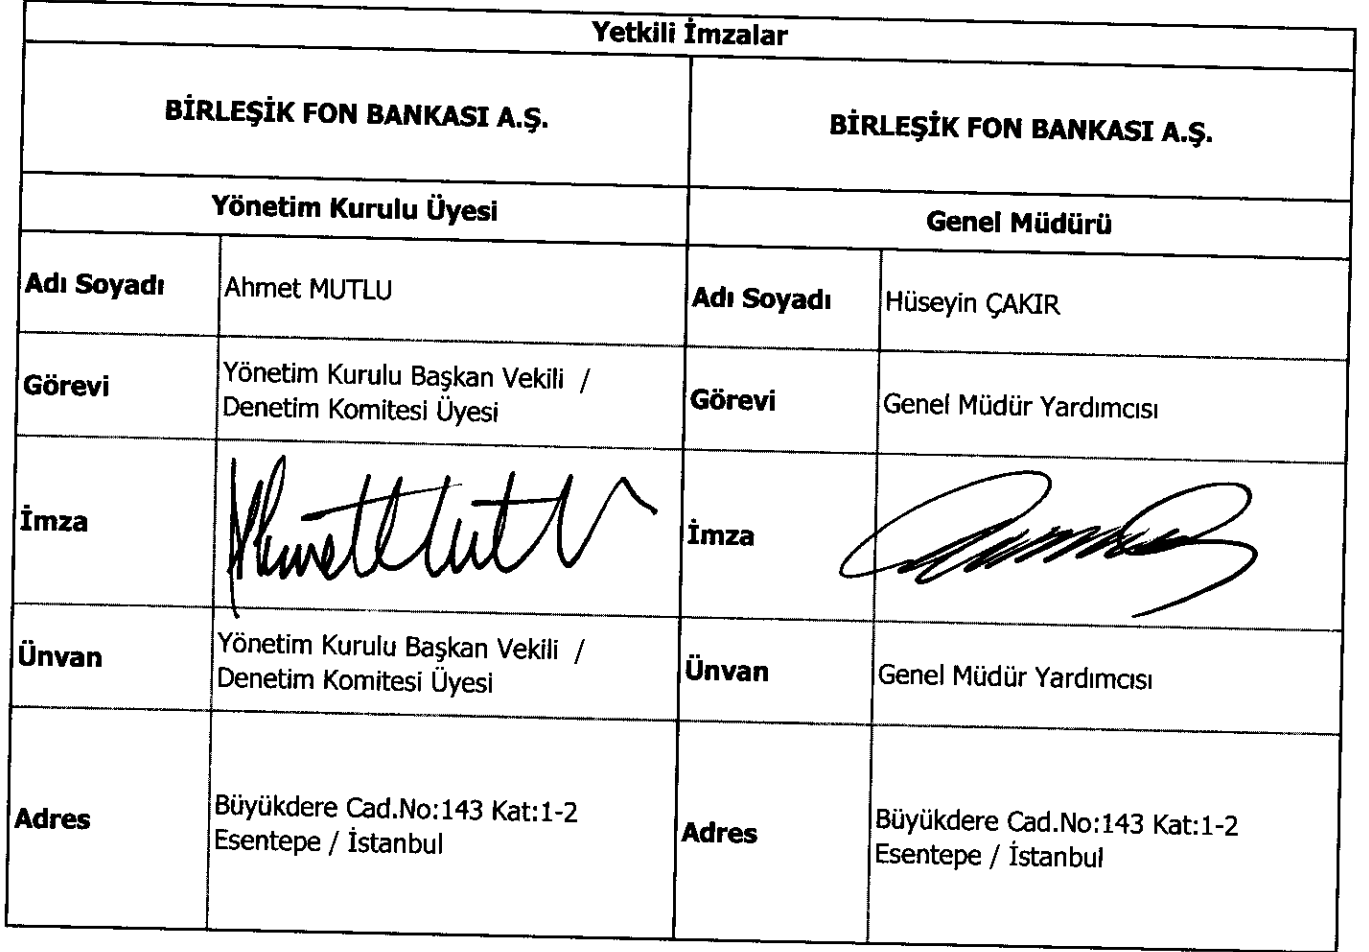 Yetkili İmzalar
BİRLEŞİK FON BANKASI A.Ş.
BİRLEŞİK FON BANKASI A.Ş.
Yönetim Kurulu Üyesi
Genel Müdürü
Adı Soyadı
Ahmet MUTLU
Adı Soyadı
Hüseyin ÇAKIR
Görevi
Yönetim Kurulu Başkan Vekili /
Denetim Komitesi Üyesi
Görevi
Genel Müdür Yardımcısı
İmza
İmza
Ünvan
Yönetim Kurulu Başkan Vekili /
Denetim Komitesi Üyesi
Ünvan
Genel Müdür Yardımcısı
Adres
Büyükdere Cad.No:143 Kat:1-2
Esentepe / İstanbul
Adres
Büyükdere Cad.No:143 Kat:1-2
Esentepe / İstanbul